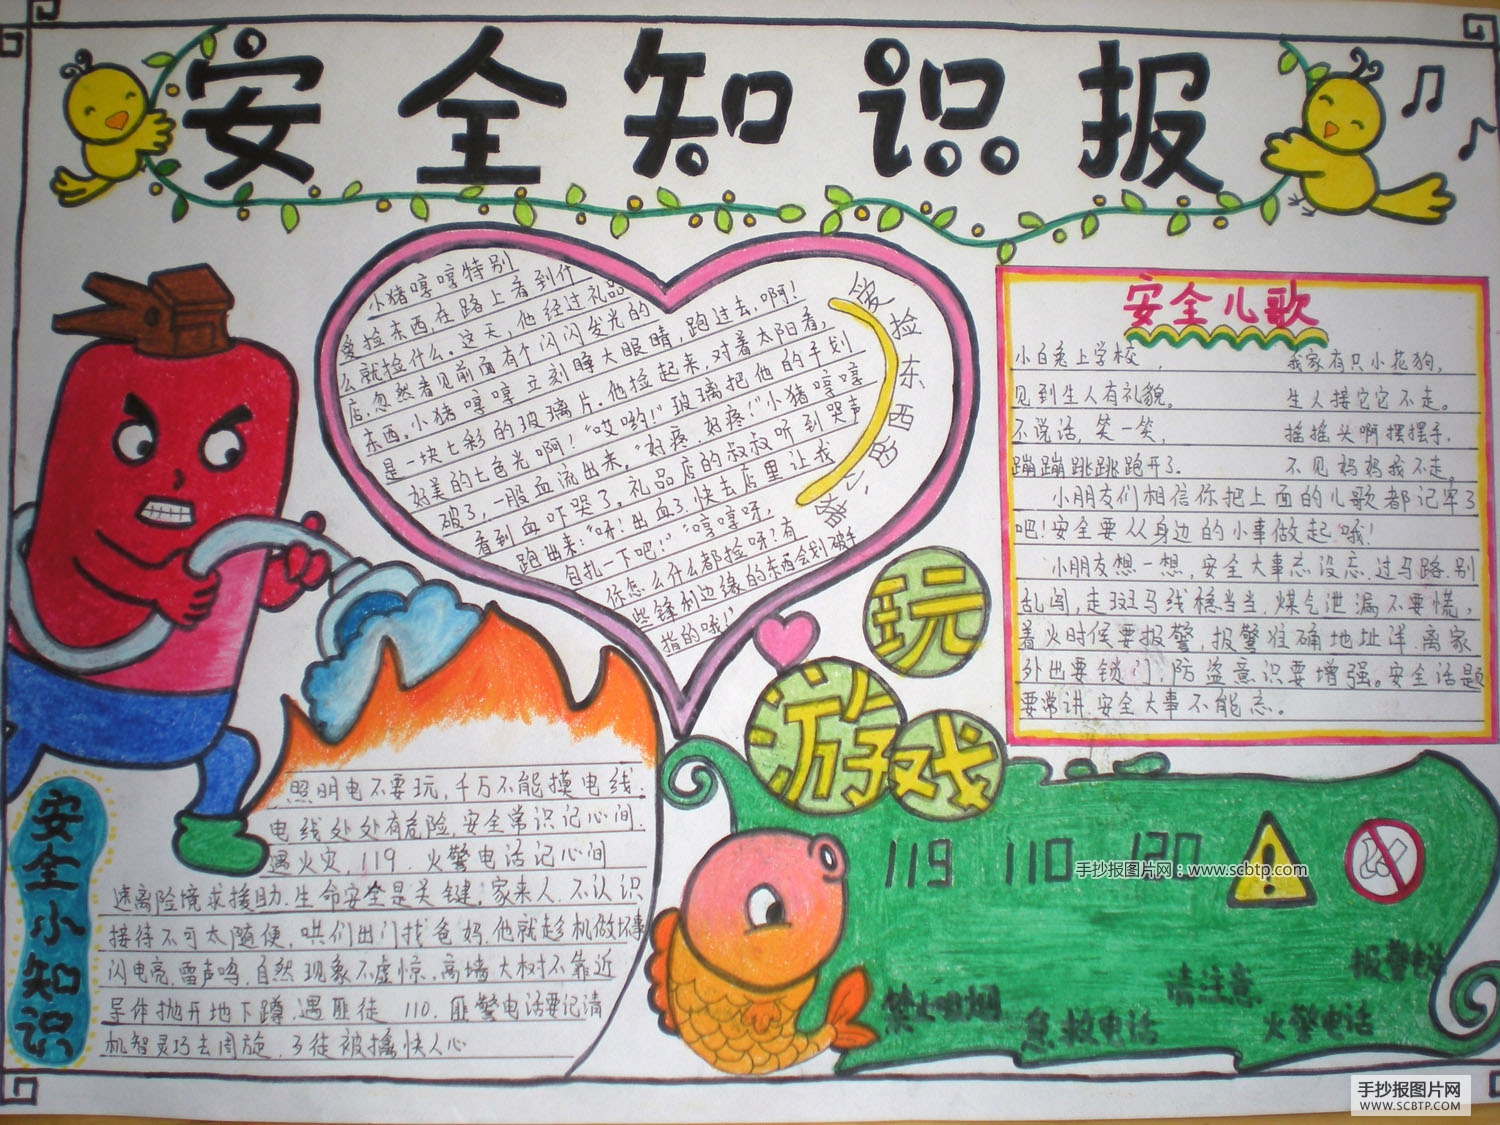 安全知识报
小猪哼哼特别
爱捡东西,在路上看到什
么就捡什么。这天,他经过礼品
店,忽然看见前面有个闪闪发光的
东西。小猪哼哼立刻睁大眼睛,跑过去,啊!
是一块七彩的玻璃片。他捡起来,对着太阳看,
好美的七色光啊!“哎哟!”玻璃把他的手划
破了,一股血流出来。“好疼,好疼!”小猪哼哼
看到血吓哭了。礼品店的叔叔听到哭声
跑出来:“呀!出血了,快去店里让我
包扎一下吧!”“哼哼呀,
你怎么什么都捡呀?有
些锋利边缘的东西会划破手
指的哦!”
爱捡东西的小猪
安全儿歌
小白兔上学校,
见到生人有礼貌。
不说话,笑一笑,
蹦蹦跳跳跑开了。
我家有只小花狗,
生人接它它不走。
摇摇头啊摆摆手,
不见妈妈我不走。
小朋友们相信你把上面的儿歌都记牢了
吧!安全要从身边的小事做起哦!
小朋友想一想,安全大事忘没忘,过马路,别
乱闯,走斑马线稳当当,煤气泄漏不要慌,
着火时候要报警,报警准确地址详,离家
外出要锁门,防盗意识要增强。安全话题
要常讲,安全大事不能忘。
玩
游戏
119 110 120
手抄报图片网:www.scbtp.com
禁止吸烟
急救电话
请注意
火警电话
报警电话
安全小知识
照明电不要玩,千万不能摸电线.
电线处处有危险,安全常识记心间.
遇火灾,119,火警电话记心间
速离险境求援助,生命安全是关键.家来人,不认识
接待不可太随便,哄们出门找爸妈,他就趁机做坏事
闪电亮,雷声鸣,自然现象不虚惊,离墙大树不靠近
导体抛开地下蹲,遇匪徒 110,匪警电话要记清
机智灵巧去周旋,歹徒被擒快人心
手抄报图片网
WWW.SCBTP.COM